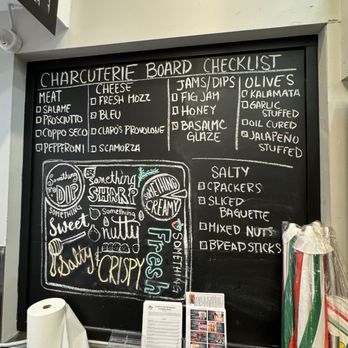 CHARCUTERIE BOARD CHECKLIST
MEAT
SALAME
PROSCIUTTO
COPPO SECO
PEPPERONI
CHEESE
FRESH MOZZ
BLEU
CLARO'S PROVOLONE
SCAMORZA
JAMS/DIPS
FIG JAM
HONEY
BASALMC
GLAZE
OLIVES
KALAMATA
GARLIC
STUFFED
OIL CURED
JALAPEÑO
STUFFED
SALTY
CRACKERS
SLICED
BAGUETTE
MIXED NUTS
BREADSTICKS
Something
to
DIP
Something
SHARP
SOMETHING
CREAMY
SOMETHING
Sweet
Something
nutty
SOMETHING
Fresh
Salty
CRISPY